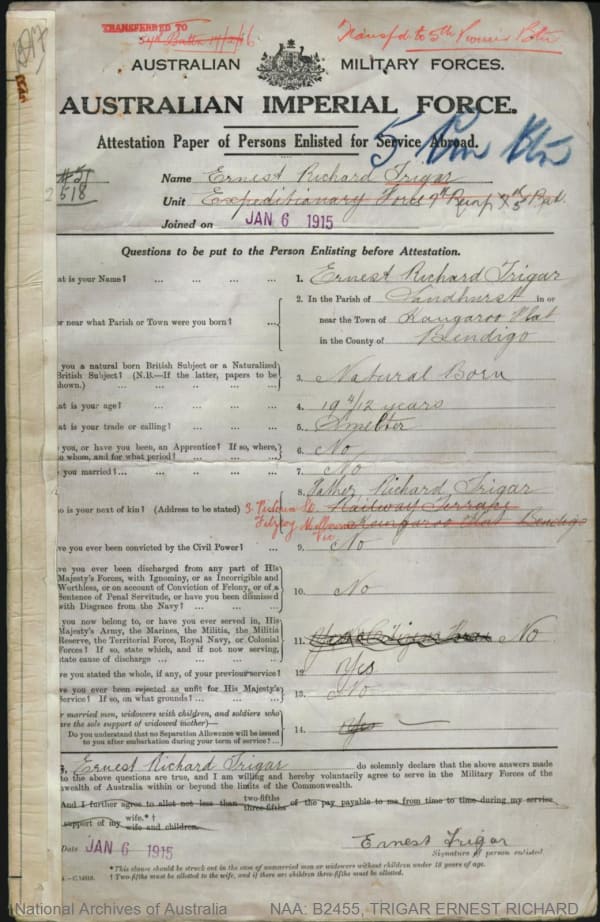 1917
TRANSFERRED TO
54th Battn 14/2/16
Transf'd to 5th Pioneer Btn
AUSTRALIAN MILITARY FORCES.
AUSTRALIAN IMPERIAL FORCE.
Attestation Paper of Persons Enlisted for Service Abroad.
5 Pion Btn
518
Name Ernest Richard Trigar
Unit Expeditionary Force
Joined on JAN 6 1915
Questions to be put to the Person Enlisting before Attestation.
at is your Name? ... ... ... ... 1. Ernest Richard Trigar
2. In the Parish of Sandhurst in or
or near what Parish or Town were you born? ... near the Town of Kangaroo Flat
in the County of Bendigo
you a natural born British Subject or a Naturalized
British Subject? (N.B.—If the latter, papers to be
shown.) ... ... ... ... 3. Natural Born
at is your age? ... ... ... ... 4. 19 4/12 years
at is your trade or calling? ... ... ... 5. Smelter
you, or have you been, an Apprentice? If so, where,
o whom, and for what period? ... ... 6. No
you married? ... ... ... ... 7. No
8. Father Richard Trigar
o is your next of kin? (Address to be stated) 3 St Railway Terrace
Fitzroy Melbourne Kangaroo Flat Bendigo
Vic
ve you ever been convicted by the Civil Power? ... 9. No
ve you ever been discharged from any part of His
Majesty's Forces, with Ignominy, or as Incorrigible and
Worthless, or on account of Conviction of Felony, or of a
Sentence of Penal Servitude, or have you been dismissed
with Disgrace from the Navy? ... ... ... 10. No
you now belong to, or have you ever served in, His
Majesty's Army, the Marines, the Militia, the Militia
Reserve, the Territorial Force, Royal Navy, or Colonial
Forces? If so, state which, and if not now serving,
state cause of discharge ... ... ... ... 11. No
ve you stated the whole, if any, of your previous service? 12 Yes
ve you ever been rejected as unfit for His Majesty's
Service? If so, on what grounds? ... ... ... 13. No
r married men, widowers with children, and soldiers who
are the sole support of widowed mother)—
Do you understand that no Separation Allowance will be issued
to you after embarkation during your term of service? ... 14. Yes
I, Ernest Richard Trigar do solemnly declare that the above answers made
to the above questions are true, and I am willing and hereby voluntarily agree to serve in the Military Forces of the
wealth of Australia within or beyond the limits of the Commonwealth.
And I further agree to allot not less than two-fifths three-fifths of the pay payable to me from time to time during my service
support of my wife.*† wife and children.
Date JAN 6 1915
Ernest Trigar
Signature of person enlisted.
* This clause should be struck out in the case of unmarried men or widowers without children under 18 years of age.
† Two-fifths must be allotted to the wife, and if there are children three-fifths must be allotted.
National Archives of Australia NAA: B2455, TRIGAR ERNEST RICHARD